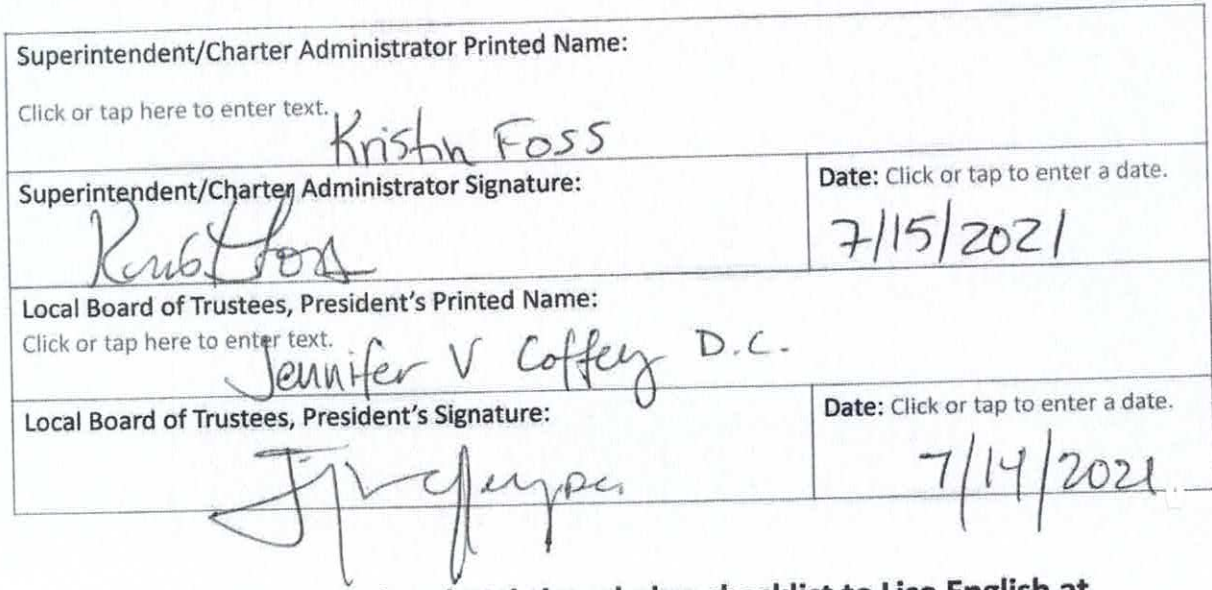 Superintendent/Charter Administrator Printed Name:
Click or tap here to enter text.
Kristin Foss
Superintendent/Charter Administrator Signature:
Date: Click or tap to enter a date.
7/15/2021
Local Board of Trustees, President's Printed Name:
Click or tap here to enter text.
Jennifer V Coffey D.C.
Local Board of Trustees, President's Signature:
Date: Click or tap to enter a date.
7/14/2021
checklist to Lisa English at